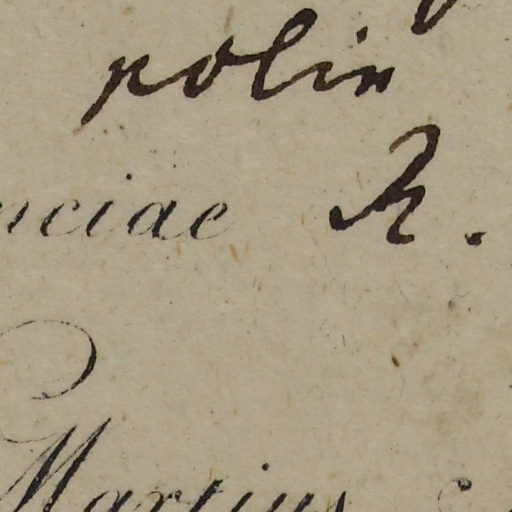 polin
nciae R.
Martius